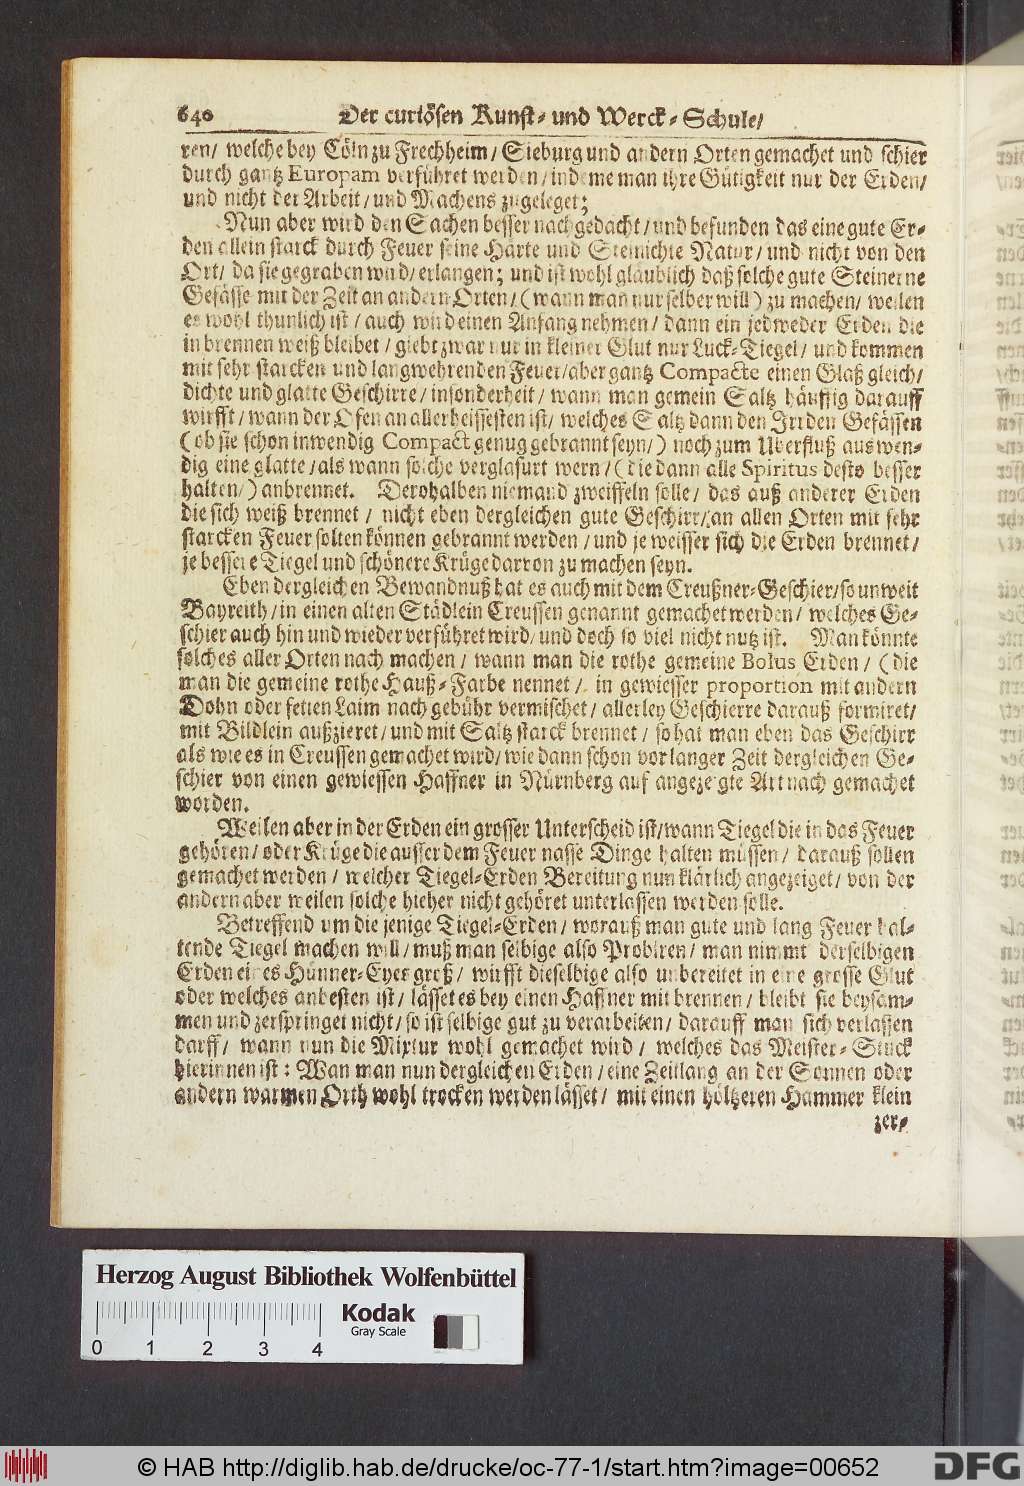 640 Der curiösen Kunst- und Werck-Schule/
ren/ welche bey Cöln zu Frechheim/ Sieburg und andern Orten gemachet und schier
durch gantz Europam verführet werden/ indeme man ihre Gütigkeit nur der Erden/
und nicht der Arbeit/ und Machens zugeleget;
Nun aber wird den Sachen besser nachgedacht/ und befunden das eine gute Er-
den allein starck durch Feuer seine Härte und Steinichte Natur/ und nicht von den
Ort/ da sie gegraben wird/ erlangen; und ist wohl gläublich daß solche gute Steinerne
Gefässe mit der Zeit an andern Orten/ (wann man nur selber will) zu machen/ weilen
es wohl thunlich ist/ auch wird einen Anfang nehmen/ dann ein jedweder Erden die
in brennen weiß bleibet/ giebt zwar nur in kleiner Glut nur Luck-Tiegel/ und kommen
mit sehr starcken und langwehrenden Feuer/ aber gantz Compacte einen Glaß gleich/
dichte und glatte Geschirre/ insonderheit/ wann man gemein Saltz häuffig darauff
wirfft/ wann der Ofen an allerheissesten ist/ welches Saltz dann den Irrden Gefässen
(ob sie schon inwendig Compact genug gebrannt seyn/) noch zum Uberfluß auswen-
dig eine glatte/ als wann solche verglasurt wern/ (die dann alle Spiritus desto besser
halten/) anbrennet. Derohalben niemand zweiffeln solle/ das auß anderer Erden
die sich weiß brennet/ nicht eben dergleichen gute Geschirr/ an allen Orten mit sehr
starcken Feuer solten können gebrannt werden/ und je weisser sich die Erden brennet/
je bessere Tiegel und schönere Krüge darron zu machen seyn.
Eben dergleichen Bewandnuß hat es auch mit dem Creußner-Geschier/ so unweit
Bayreith/ in einen alten Städlein Creussen genannt gemachet werden/ welches Ge-
schier auch hin und wieder verführet wird/ und doch so viel nicht nutz ist. Man könnte
solches aller Orten nach machen/ wann man die rothe gemeine Bolus Erden/ (die
man die gemeine rothe Hauß-Farbe nennet/ in gewiesser proportion mit andern
Dohn oder fetten Laim nach gebühr vermischet/ allerley Geschierre darauß formiret/
mit Bildlein außzieret/ und mit Saltz starck brennet/ so hat man eben das Geschirr
als wie es in Creussen gemachet wird/ wie dann schon vor langer Zeit dergleichen Ge-
schier von einen gewiessen Haffner in Nürnberg auf angezeigte Art nach gemachet
worden.
Weilen aber in der Erden ein grosser Unterscheid ist/ wann Tiegel die in das Feuer
gehören/ oder Krüge die ausser dem Feuer nasse Dinge halten müssen/ darauß sollen
gemachet werden/ welcher Tiegel-Erden Bereitung nun klärlich angezeiget/ von der
andern aber weilen solche hieher nicht gehöret unterlassen werden solle.
Betreffend um die jenige Tiegel-Erden/ worauß man gute und lang Feuer hal-
tende Tiegel machen will/ muß man selbige also Probiren/ man nimmt derselbigen
Erden eines Hünner-Eyes groß/ wirfft dieselbige also unbereitet in eine grosse Glut
oder welches anbesten ist/ lässet es bey einen Haffner mit brennen/ bleibt sie beysam-
men und zerspringet nicht/ so ist selbige gut zu verarbeiten/ darauff man sich verlassen
darff/ wann nun die Mixtur wohl gemachet wird/ welches das Meister-Stück
hierinnen ist: Wan man nun dergleichen Erden/ eine Zeitlang an der Sonnen oder
andern warmen Orth wohl trocken werden lässet/ mit einen höltzeren Hammer klein
zer-
Herzog August Bibliothek Wolfenbüttel
Kodak
Gray Scale
0 1 2 3 4
© HAB http://diglib.hab.de/drucke/oc-77-1/start.htm?image=00652
DFG